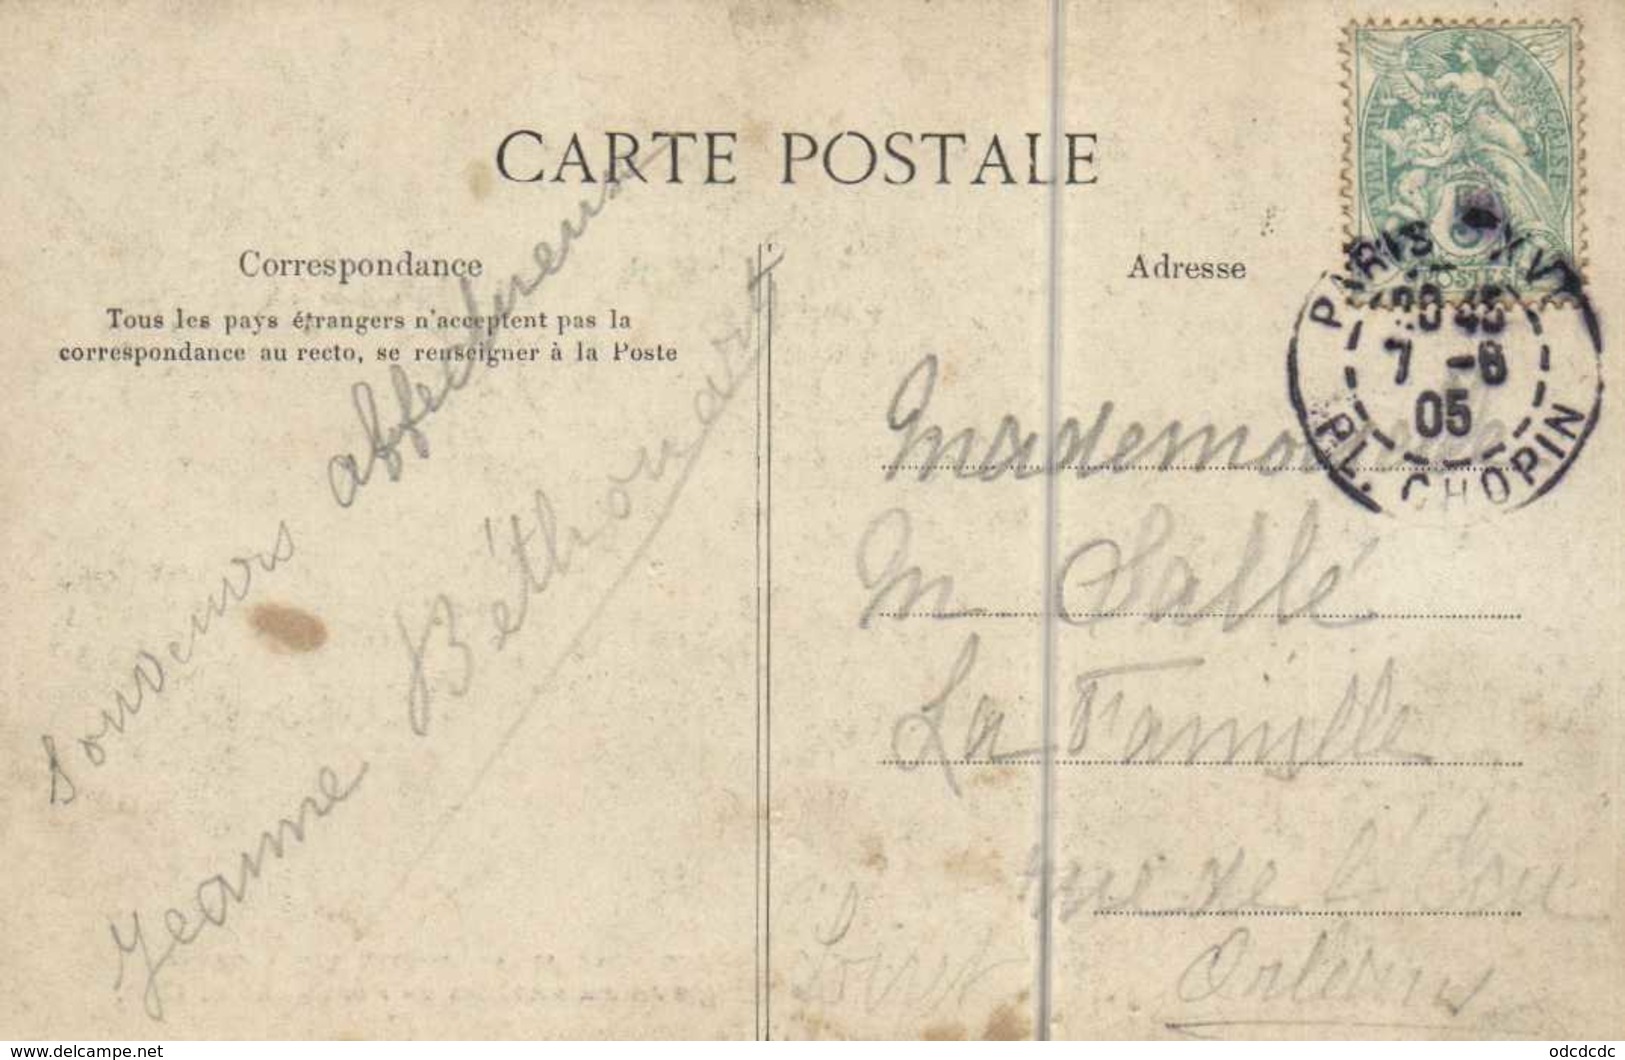 CARTE POSTALE
Correspondance
Tous les pays étrangers n'acceptent pas la
correspondance au recto, se renseigner à la Poste
Souvenirs affectueux
Jeanne Béthouart
Adresse
REPUBLIQUE FRANÇAISE
5
POSTES
PARIS XVI
20 45
7 -6
05
PL. CHOPIN
Mademoiselle
M Sallé
La Famille
rue de l'Écu
Orléans
Loiret
odcdcdc
delcampe.net